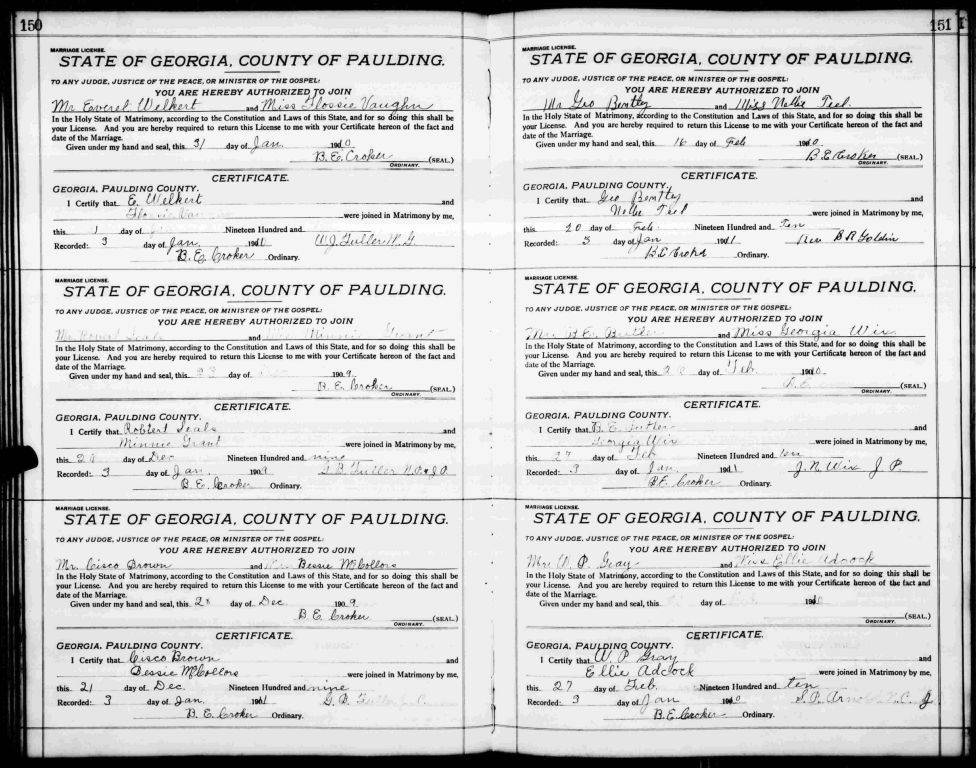 150
MARRIAGE LICENSE.
STATE OF GEORGIA, COUNTY OF PAULDING.
TO ANY JUDGE, JUSTICE OF THE PEACE, OR MINISTER OF THE GOSPEL:
YOU ARE HEREBY AUTHORIZED TO JOIN
Mr Everel Welkert and Miss Flossie Vaughn
In the Holy State of Matrimony, according to the Constitution and Laws of this State, and for so doing this shall be
your License. And you are hereby required to return this License to me with your Certificate hereon of the fact and
date of the Marriage.
Given under my hand and seal, this 31 day of Jan. 1910.
B. E. Croker (SEAL.)
ORDINARY.
CERTIFICATE.
GEORGIA, PAULDING COUNTY.
I Certify that E. Welkert and
Flossie were joined in Matrimony by me,
this 1 day of Nineteen Hundred and
Recorded: 3 day of Jan. 1911 W. J. Fuller
B. E. Croker Ordinary.
MARRIAGE LICENSE.
STATE OF GEORGIA, COUNTY OF PAULDING.
TO ANY JUDGE, JUSTICE OF THE PEACE, OR MINISTER OF THE GOSPEL:
YOU ARE HEREBY AUTHORIZED TO JOIN
Mr and Minnie
In the Holy State of Matrimony, according to the Constitution and Laws of this State, and for so doing this shall be
your License. And you are hereby required to return this License to me with your Certificate hereon of the fact and
date of the Marriage.
Given under my hand and seal, this 23 day of 1909.
B. E. Croker (SEAL.)
ORDINARY.
CERTIFICATE.
GEORGIA, PAULDING COUNTY.
I Certify that Robtert Seals and
Minnie Grant were joined in Matrimony by me,
this day of Dec Nineteen Hundred and nine
Recorded: 3 day of Jan. 190 G. B. Fuller N.P. & J.P.
B. E. Croker Ordinary.
MARRIAGE LICENSE.
STATE OF GEORGIA, COUNTY OF PAULDING.
TO ANY JUDGE, JUSTICE OF THE PEACE, OR MINISTER OF THE GOSPEL:
YOU ARE HEREBY AUTHORIZED TO JOIN
Mr. Cisco Brown and Bessie McCollors
In the Holy State of Matrimony, according to the Constitution and Laws of this State, and for so doing this shall be
your License. And you are hereby required to return this License to me with your Certificate hereon of the fact and
date of the Marriage.
Given under my hand and seal, this day of Dec 1909.
B. E. Croker (SEAL.)
ORDINARY.
CERTIFICATE.
GEORGIA, PAULDING COUNTY.
I Certify that Cisco Brown and
Bessie McCollors were joined in Matrimony by me,
this 21 day of Dec. Nineteen Hundred and nine
Recorded: 3 day of Jan. 1911 G. B. Fuller
B. E. Croker Ordinary.
151
MARRIAGE LICENSE.
STATE OF GEORGIA, COUNTY OF PAULDING.
TO ANY JUDGE, JUSTICE OF THE PEACE, OR MINISTER OF THE GOSPEL:
YOU ARE HEREBY AUTHORIZED TO JOIN
Mr Geo Bentley and Miss Nellie Teel
In the Holy State of Matrimony, according to the Constitution and Laws of this State, and for so doing this shall be
your License. And you are hereby required to return this License to me with your Certificate hereon of the fact and
date of the Marriage.
Given under my hand and seal, this 16 day of Feb 1910.
B. E. Croker (SEAL.)
ORDINARY.
CERTIFICATE.
GEORGIA, PAULDING COUNTY.
I Certify that Geo Bentley and
Nellie Teel were joined in Matrimony by me,
this 20 day of Feb. Nineteen Hundred and Ten
Recorded: 3 day of Jan 1911 Rev Goldin
B. E. Croker Ordinary.
MARRIAGE LICENSE.
STATE OF GEORGIA, COUNTY OF PAULDING.
TO ANY JUDGE, JUSTICE OF THE PEACE, OR MINISTER OF THE GOSPEL:
YOU ARE HEREBY AUTHORIZED TO JOIN
Mr. B. E. Butler and Miss Georgia Wix
In the Holy State of Matrimony, according to the Constitution and Laws of this State, and for so doing this shall be
your License. And you are hereby required to return this License to me with your Certificate hereon of the fact and
date of the Marriage.
Given under my hand and seal, this day of Feb. 1910.
(SEAL.)
ORDINARY.
CERTIFICATE.
GEORGIA, PAULDING COUNTY.
I Certify that B. E. Butler and
Georgia Wix were joined in Matrimony by me,
this 27 day of Feb Nineteen Hundred and ten
Recorded: 3 day of Jan. 1911 J. R. Wix J P.
B. E. Croker Ordinary.
MARRIAGE LICENSE.
STATE OF GEORGIA, COUNTY OF PAULDING.
TO ANY JUDGE, JUSTICE OF THE PEACE, OR MINISTER OF THE GOSPEL:
YOU ARE HEREBY AUTHORIZED TO JOIN
Mr W. P. Gray and Miss Ellie Adcock
In the Holy State of Matrimony, according to the Constitution and Laws of this State, and for so doing this shall be
your License. And you are hereby required to return this License to me with your Certificate hereon of the fact and
date of the Marriage.
Given under my hand and seal, this day of 1910.
(SEAL.)
ORDINARY.
CERTIFICATE.
GEORGIA, PAULDING COUNTY.
I Certify that W. P. Gray and
Ellie Adcock were joined in Matrimony by me,
this 27 day of Feb. Nineteen Hundred and ten
Recorded: 3 day of Jan 1910
B. E. Croker Ordinary.